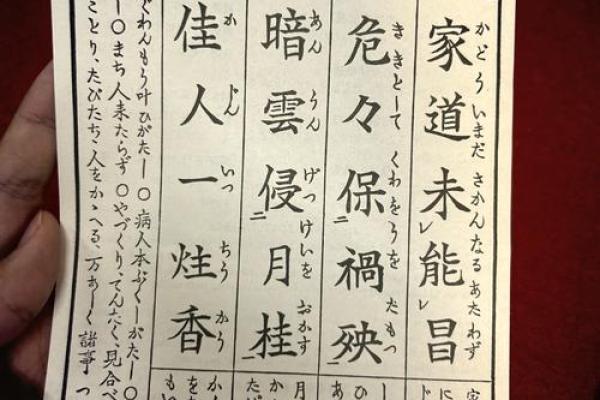 かどう いまだ さかんなる あたわず
家道未レ能レ昌
ききとして くわをうを たもつ
危々保二禍殃一
あんうん げつけいを おかす
暗雲侵二月桂一
かじん いつ ちう かう
佳人一炷香
わんもう叶ひがたし ○病人本ぶくしがたし ○
○まち人来たらず ○やづくり、てんたく見合べ
ことり、たびたち、人をかゝへる、万あしく 諸事 つ